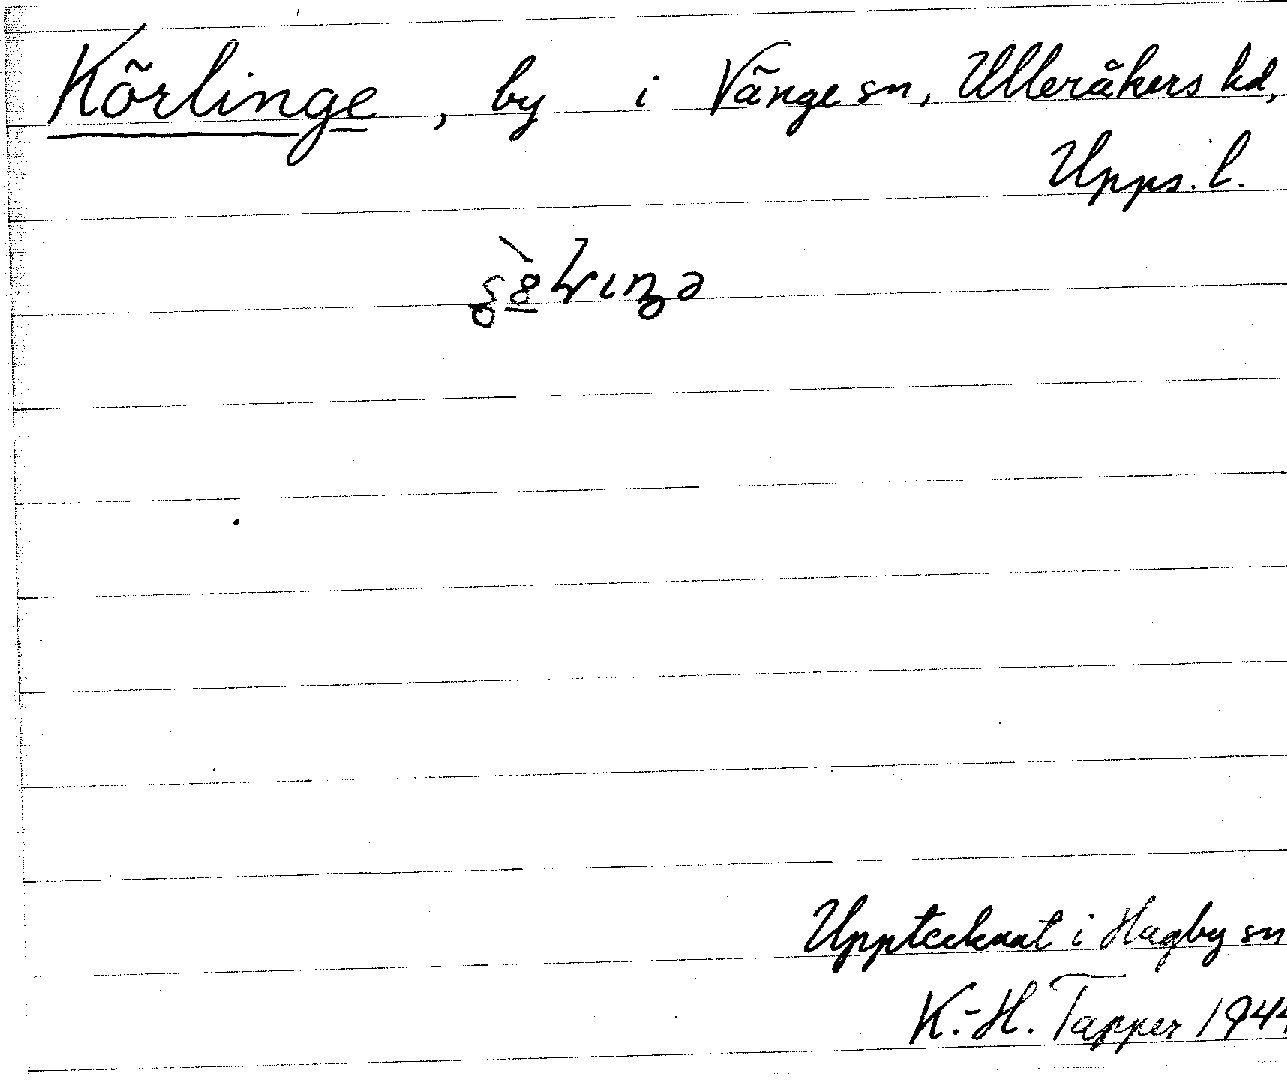 Körlinge, by i Vänge sn, Ulleråkers hd,
Upps. l.
Upptecknat i Hagby sn
K.-H. Tapper 1944